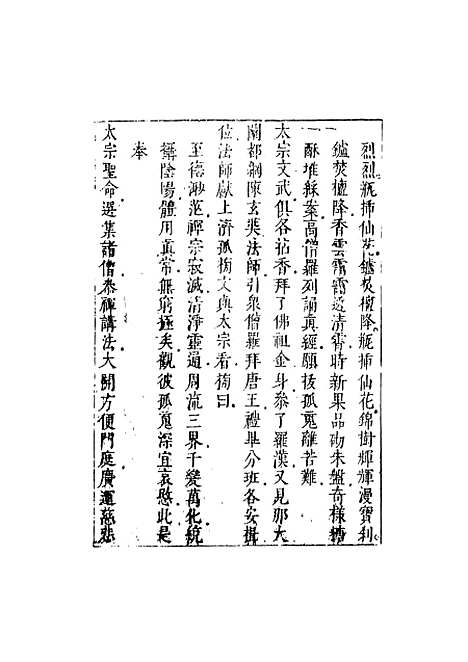 烈烈瓶插仙花鑪焚檀降瓶插仙花錦樹輝輝漫寶刹
鑪焚檀降香雲靄靄透清霄時新果品砌朱盤奇樣糖
酥堆綵案高僧羅列誦眞經願拔孤䰟離苦難
太宗文武俱各拈香拜了佛祖金身叅了羅漢又見那大
闡都綱陳玄奘法師引衆僧羅拜唐王禮畢分班各安禪
位法師獻上濟孤榜文與太宗看榜曰
至德渺茫禪宗寂滅清淨靈通周流三界千變萬化統
攝陰陽體用眞常無窮極矣觀彼孤䰟深宜哀愍此是
奉
太宗聖命選集諸僧叅禪講法大開方便門庭廣運慈悲